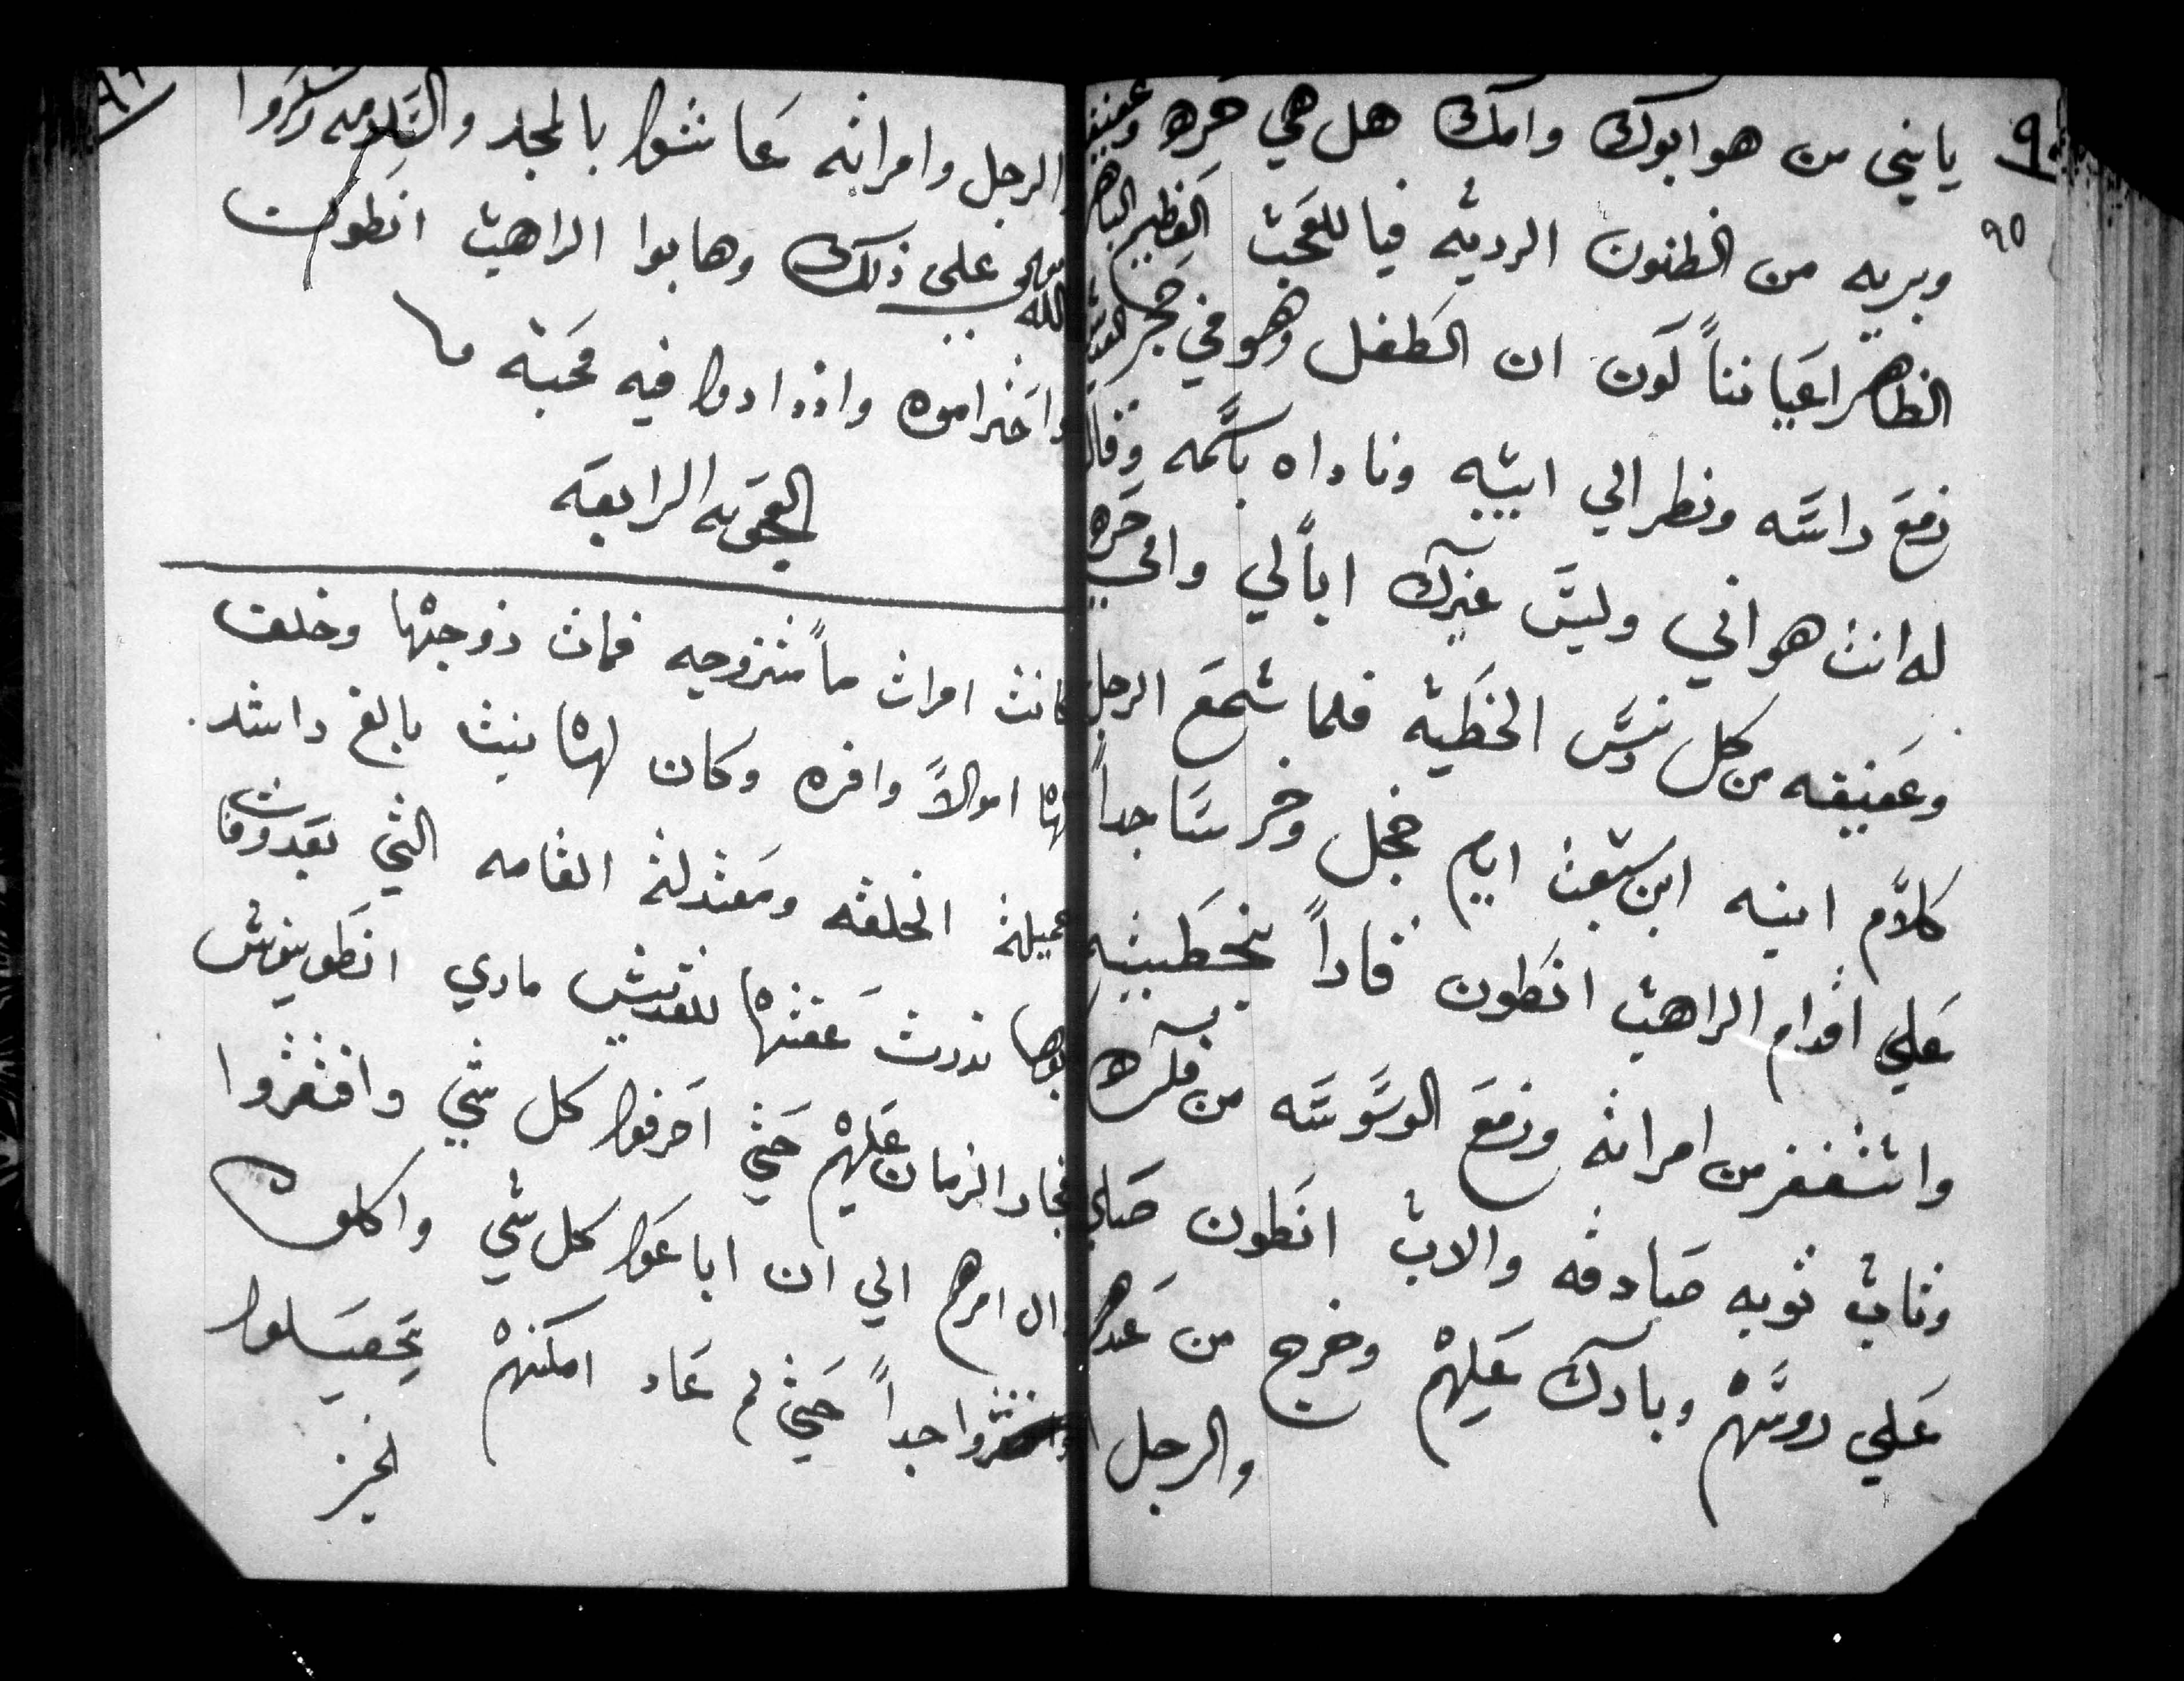 ٩٥
يابني من هو ابوك وامك هل هي حره وعفيفه
وبريه من الظنون الرديه فيا للعجب العظيم الباهر
الظاهر اعياناً كون ان الطفل وهو في حجر
رفع راسه ونظر الي ابيه وناداه باسمه وقال
له انت هو ابي وليس غيرك اباً لي وامي حره
وعفيفه من كل دنس الخطيه فلما سمع الرجل
كلام ابنه ابن سبعت ايام خجل وخر ساجداً
علي اقدام الراهب انطون قاراً بخطيته
واستغفر من امراته ورفع الوسوسه من فكره
وتاب توبه صادقه والاب انطون صلي
علي روسهم وبارك عليهم وخرج من عندهم
والرجل
الرجل وامراته عاشوا بالمجد والكرامه وشكروا
الله علي ذلك وهابوا الراهب انطون
واحتراموه وازدادوا فيه محبة
العجوبه الرابعه
كانت امرات ما متزوجه فمات زوجها وخلف
لها اموالاً وافره وكان لها بنت بالغ راشد
جميلة الخلقه ومعتدلة القامه التي بعد وفات
ابوها نذرت عفتها للقديس ماري انطونيوس
فجار الزمان عليهم حتي اصرفوا كل شي وافتقروا
وال امرهم الي ان اباعوا كل شي واكلوه
جداً حتي لم عاد امكنهم يحصلوا
لخبز